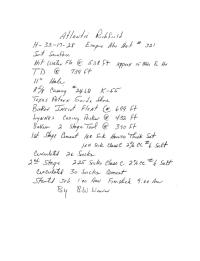 Atlantic Richfield
H-33-17-28 Empire Abo Unit # 321
Hit Water Flo @ 538 ft
TD @ 739 ft
11" Hole
8 5/8 Casing #24LB K-55
Texas Pattern Guide Shoe
Baker Insert Float @ 699 ft
Lynnes Casing Packer @ 492 ft
Baker 2 Stage Tool @ 390 ft
1st Stage Cement 100 Sick Thick Set
100 sick Class C 2% CC
Circulated 20 Sacks
2nd Stage 225 Sicks Class C 2% CC
Circulated 30 Sacks Cement
Started Job 1:00 Finished 4:00
By